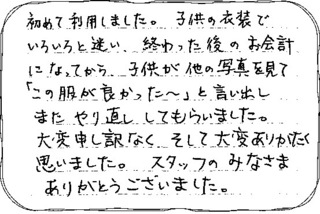 初めて利用しました。子供の衣装で
いろいろと迷い、終わった後のお会計
になってから、子供が他の写真を見て
「この服が良かった〜」と言い出し
またやり直ししてもらいました。
大変申し訳なく、そして大変ありがたく
思いました。スタッフのみなさま
ありがとうございました。